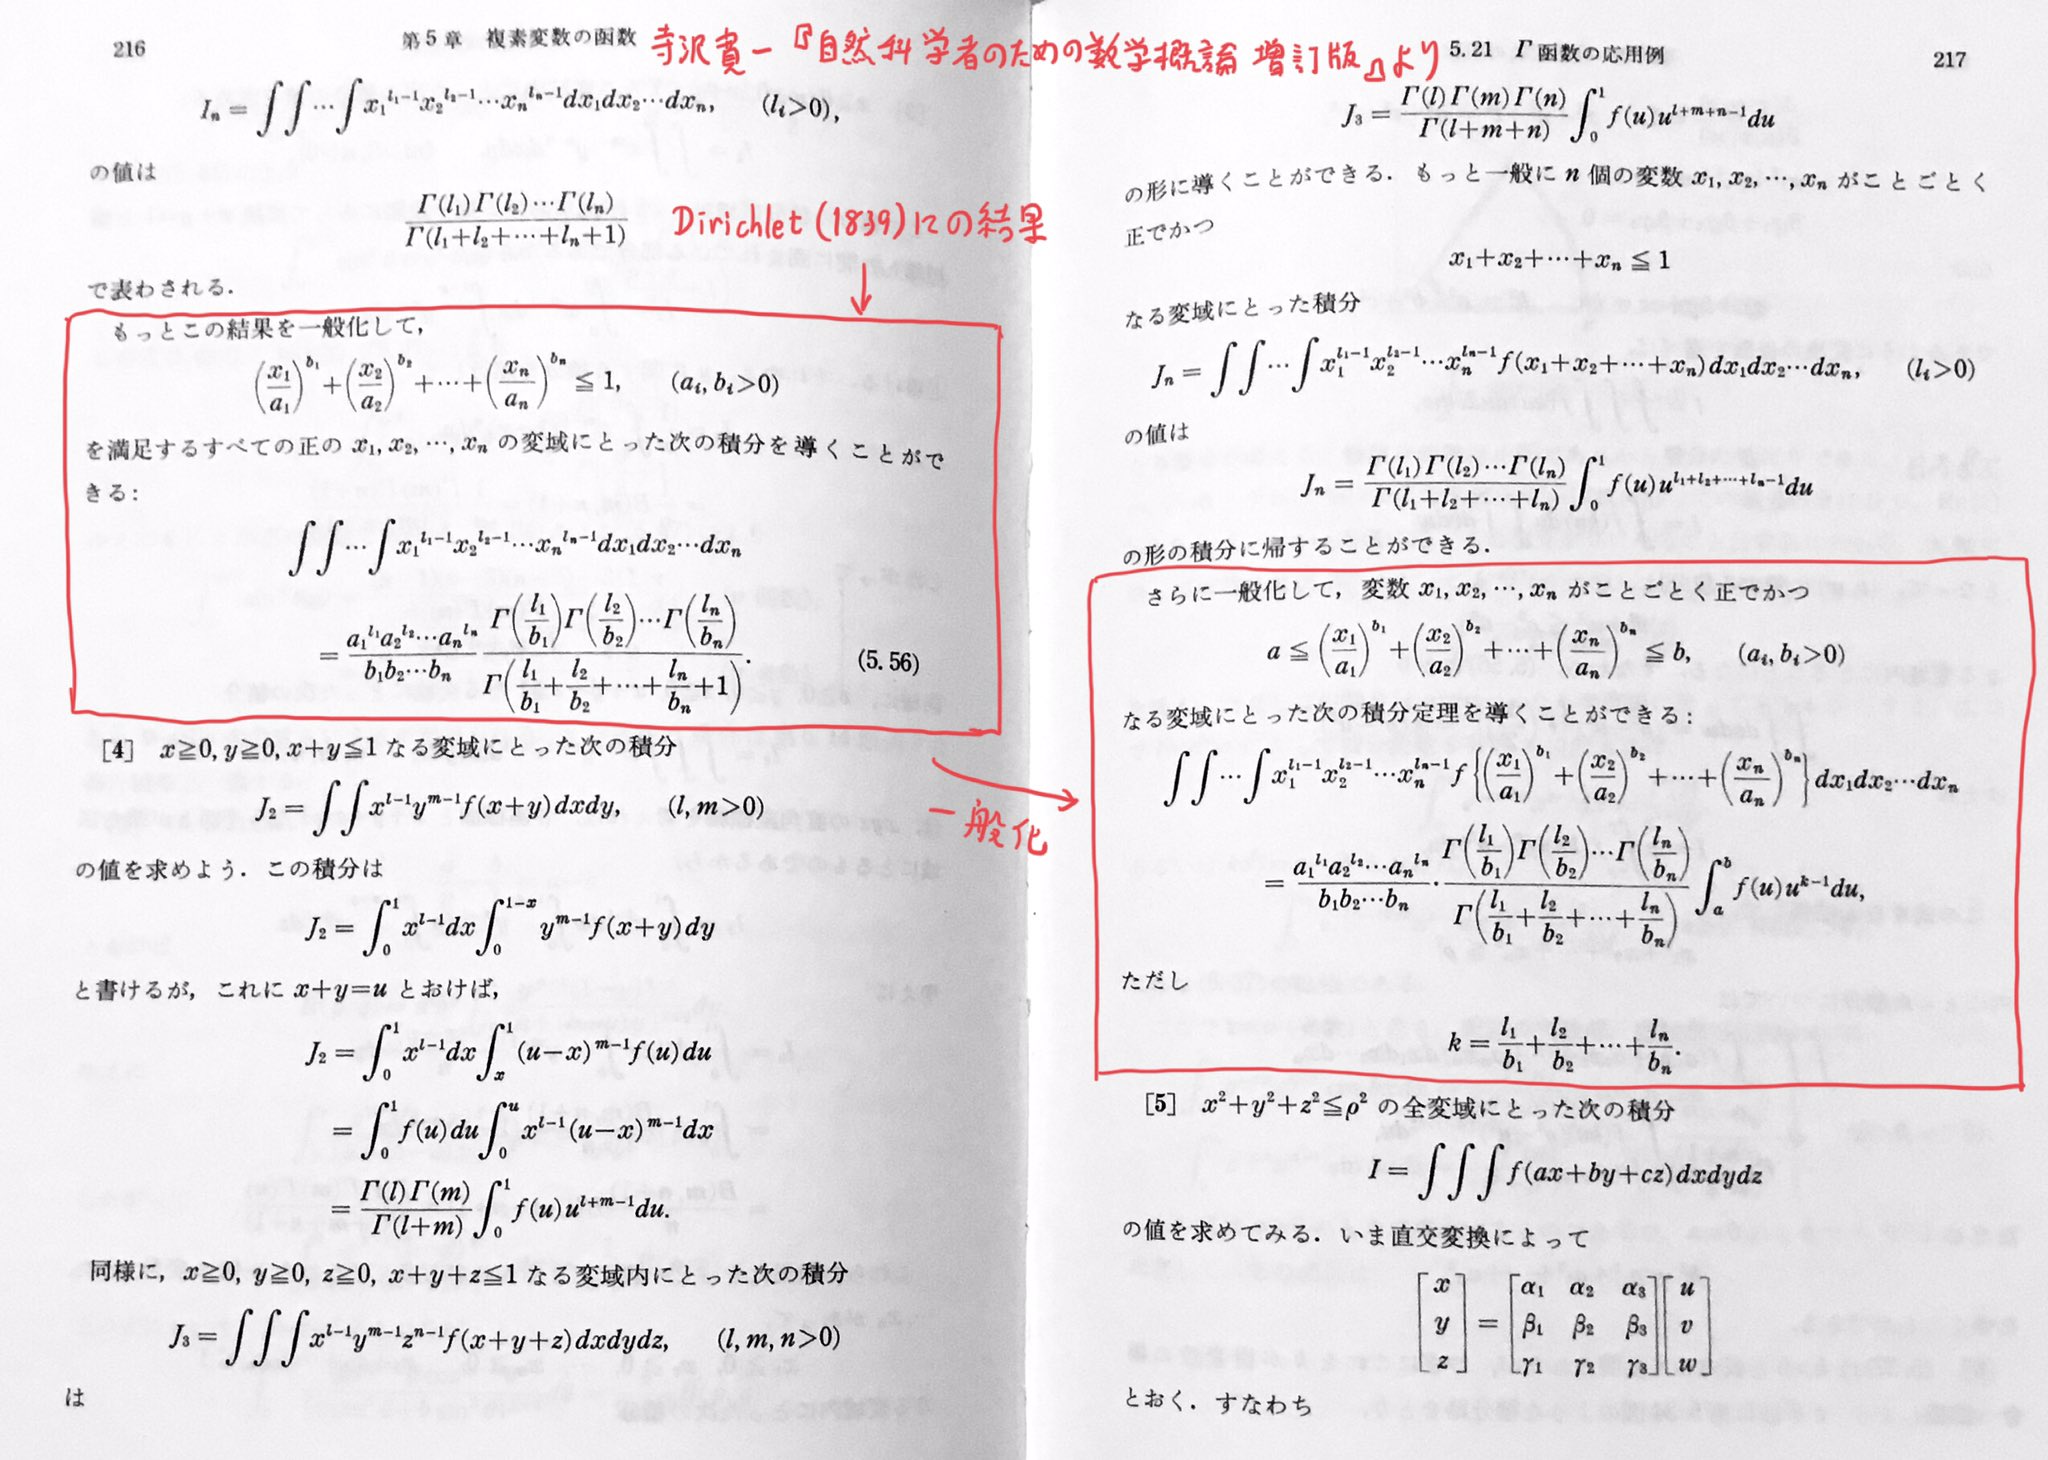 216
第5章 複素変数の函数
寺沢寛一『自然科学者のための数学概論 増訂版』より
I_n = ∫∫⋯∫ x_1^{l_1-1} x_2^{l_2-1} ⋯ x_n^{l_n-1} dx_1 dx_2 ⋯ dx_n, (l_i>0),
の値は
Γ(l_1)Γ(l_2)⋯Γ(l_n) / Γ(l_1+l_2+⋯+l_n+1)
Dirichlet (1839)にの結果
で表わされる.
もっとこの結果を一般化して,
(x_1/a_1)^{b_1} + (x_2/a_2)^{b_2} + ⋯ + (x_n/a_n)^{b_n} ≦ 1, (a_i, b_i>0)
を満足するすべての正の x_1, x_2, ⋯, x_n の変域にとった次の積分を導くことがで
きる:
∫∫⋯∫ x_1^{l_1-1} x_2^{l_2-1} ⋯ x_n^{l_n-1} dx_1 dx_2 ⋯ dx_n
= (a_1^{l_1} a_2^{l_2} ⋯ a_n^{l_n} / b_1 b_2 ⋯ b_n) Γ(l_1/b_1)Γ(l_2/b_2)⋯Γ(l_n/b_n) / Γ(l_1/b_1 + l_2/b_2 + ⋯ + l_n/b_n + 1). (5.56)
[4] x≧0, y≧0, x+y≦1 なる変域にとった次の積分
J_2 = ∫∫ x^{l-1} y^{m-1} f(x+y) dxdy, (l, m>0)
一般化
の値を求めよう. この積分は
J_2 = ∫_0^1 x^{l-1} dx ∫_0^{1-x} y^{m-1} f(x+y) dy
と書けるが, これに x+y=u とおけば,
J_2 = ∫_0^1 x^{l-1} dx ∫_x^1 (u-x)^{m-1} f(u) du
= ∫_0^1 f(u) du ∫_0^u x^{l-1} (u-x)^{m-1} dx
= Γ(l)Γ(m) / Γ(l+m) ∫_0^1 f(u) u^{l+m-1} du.
同様に, x≧0, y≧0, z≧0, x+y+z≦1 なる変域内にとった次の積分
J_3 = ∫∫∫ x^{l-1} y^{m-1} z^{n-1} f(x+y+z) dxdydz, (l, m, n>0)
は
5.21 Γ 函数の応用例
217
J_3 = Γ(l)Γ(m)Γ(n) / Γ(l+m+n) ∫_0^1 f(u) u^{l+m+n-1} du
の形に導くことができる. もっと一般に n 個の変数 x_1, x_2, ⋯, x_n がことごとく
正でかつ
x_1+x_2+⋯+x_n ≦ 1
なる変域にとった積分
J_n = ∫∫⋯∫ x_1^{l_1-1} x_2^{l_2-1} ⋯ x_n^{l_n-1} f(x_1+x_2+⋯+x_n) dx_1 dx_2 ⋯ dx_n, (l_i>0)
の値は
J_n = Γ(l_1)Γ(l_2)⋯Γ(l_n) / Γ(l_1+l_2+⋯+l_n) ∫_0^1 f(u) u^{l_1+l_2+⋯+l_n-1} du
の形の積分に帰することができる.
さらに一般化して, 変数 x_1, x_2, ⋯, x_n がことごとく正でかつ
a ≦ (x_1/a_1)^{b_1} + (x_2/a_2)^{b_2} + ⋯ + (x_n/a_n)^{b_n} ≦ b, (a_i, b_i>0)
なる変域にとった次の積分定理を導くことができる:
∫∫⋯∫ x_1^{l_1-1} x_2^{l_2-1} ⋯ x_n^{l_n-1} f{(x_1/a_1)^{b_1} + (x_2/a_2)^{b_2} + ⋯ + (x_n/a_n)^{b_n}} dx_1 dx_2 ⋯ dx_n
= (a_1^{l_1} a_2^{l_2} ⋯ a_n^{l_n} / b_1 b_2 ⋯ b_n) · Γ(l_1/b_1)Γ(l_2/b_2)⋯Γ(l_n/b_n) / Γ(l_1/b_1 + l_2/b_2 + ⋯ + l_n/b_n) ∫_a^b f(u) u^{k-1} du,
ただし
k = l_1/b_1 + l_2/b_2 + ⋯ + l_n/b_n.
[5] x²+y²+z²≦ρ² の全変域にとった次の積分
I = ∫∫∫ f(ax+by+cz) dxdydz
の値を求めてみる. いま直交変換によって
[x] [α_1 α_2 α_3] [u]
[y] = [β_1 β_2 β_3] [v]
[z] [γ_1 γ_2 γ_3] [w]
とおく. すなわち